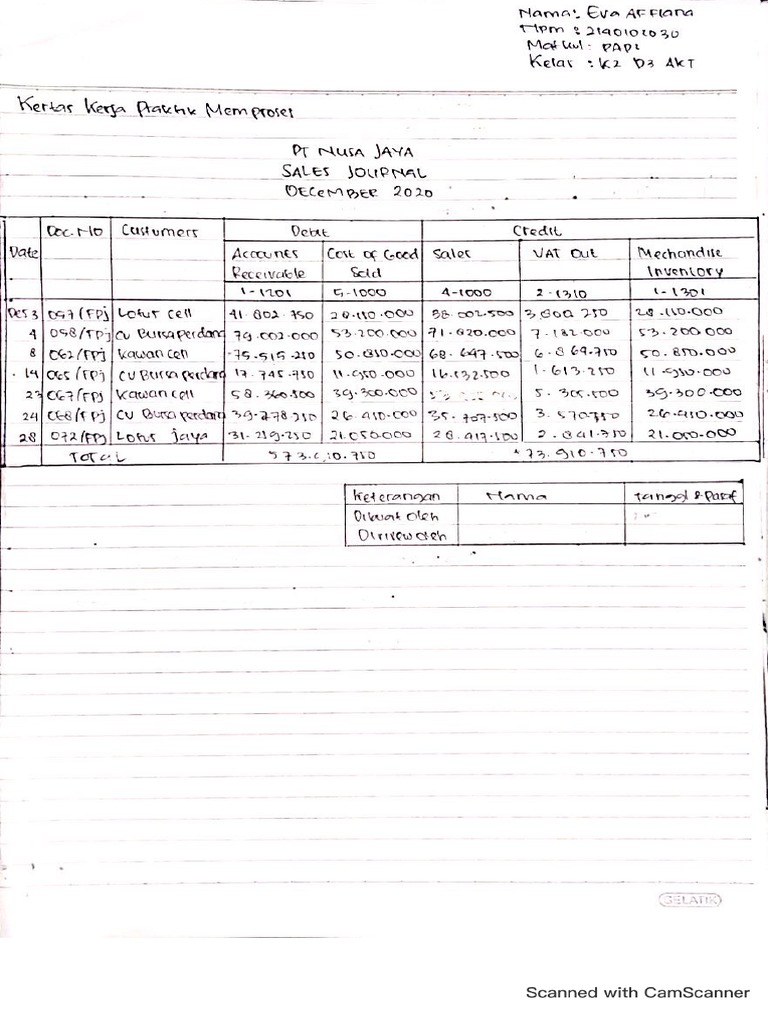 Nama: Eva Affiana
Npm : 2190102030
Matkul: PAP2
Kelas : K2 D3 AKT
Kertas Kerja Praktik Memproses
PT NUSA JAYA
SALES JOURNAL
DECEMBER 2020
Date Doc.No Custumers Debit Credit
Accounts Receivable Cost of Good Sold Sales VAT Out Mechandise Inventory
1-1201 5-1000 4-1000 2-1310 1-1301
Des 3 057/FPJ Lotus cell 41.802.750 28.110.000 38.002.500 3.800.250 28.110.000
4 058/FPJ CV Bursa perdana 79.002.000 53.200.000 71.820.000 7.182.000 53.200.000
8 062/FPJ Kawan cell 75.515.250 50.850.000 68.647.500 6.869.750 50.850.000
14 065/FPJ CV Bursa perdana 17.745.750 11.950.000 16.132.500 1.613.250 11.950.000
23 067/FPJ Kawan cell 58.360.500 39.300.000 5.305.500 39.300.000
24 068/FPJ CV Bursa perdana 39.278.250 26.450.000 35.707.500 3.570.750 26.450.000
28 072/FPJ Lotus jaya 31.259.250 21.050.000 28.417.500 2.841.750 21.050.000
TOTAL 573.910.750
Keterangan Nama Tanggal & Paraf
Dibuat oleh
Diriview oleh
GELATIK
Scanned with CamScanner